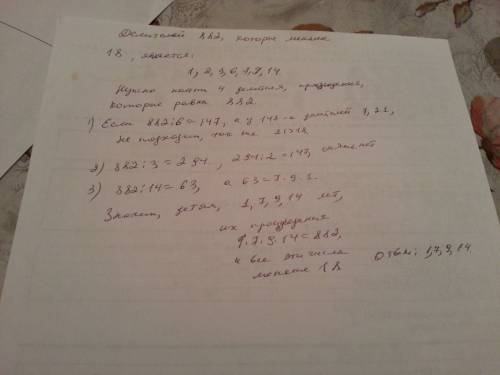 Делителей 882, которые меньше
18, является:
1, 2, 3, 6, 7, 9, 14
Нужно найти 4 делителя, произведение,
которые равна 882.
1) Если 882:6=147, а у 147 - делителей 7, 21,
не подходит, так как 21>18
2) 882:3=294, 294:2=147,
3) 882:14=63, а 63=7·9·1.
Значит, детям, 1, 7, 9, 14 лет,
их произведения
1·7·9·14=882,
и все эти числа
меньше 18
Ответ: 1,7,9,14.